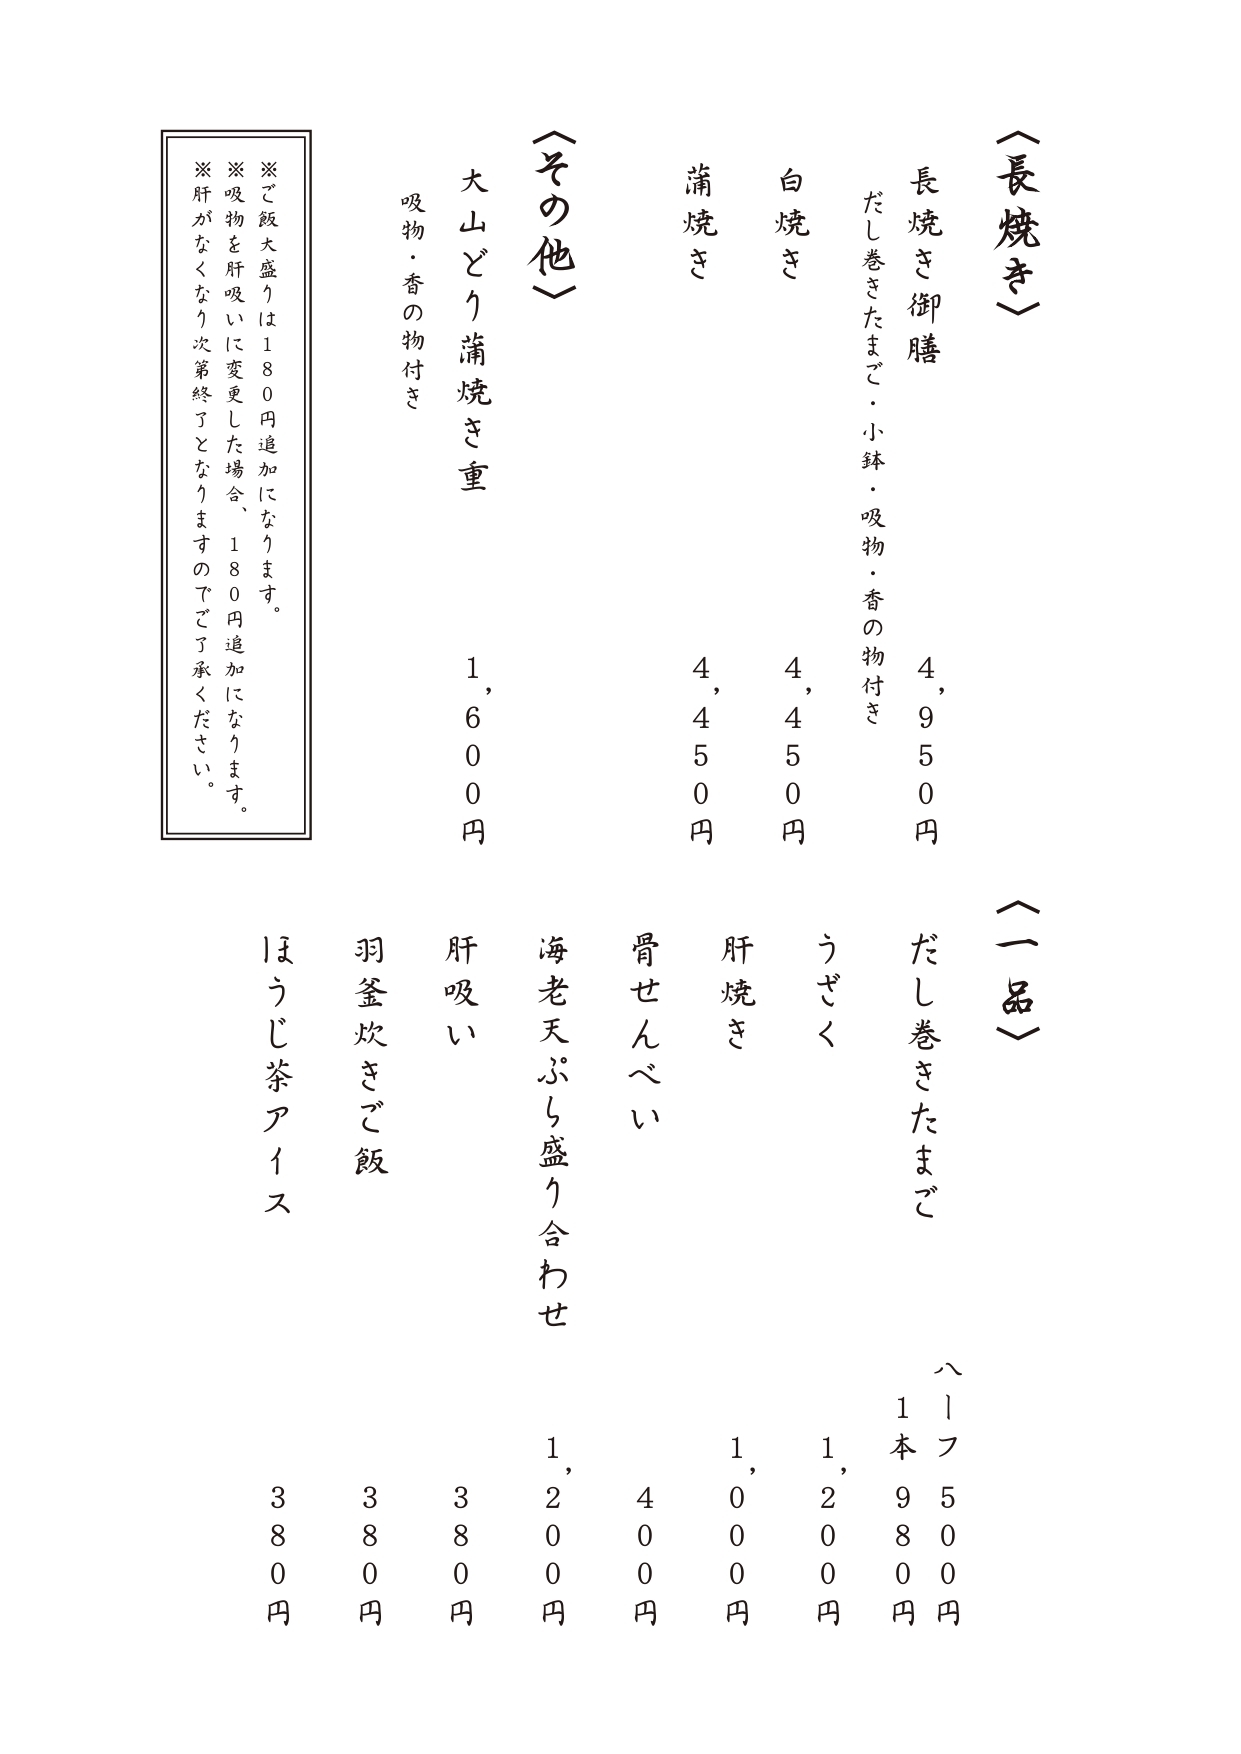 〈長焼き〉
長焼き御膳 4,950円
だし巻きたまご・小鉢・吸物・香の物付き
白焼き 4,450円
蒲焼き 4,450円
〈その他〉
大山どり蒲焼き重 1,600円
吸物・香の物付き
※ご飯大盛りは180円追加になります。
※吸物を肝吸いに変更した場合、180円追加になります。
※肝がなくなり次第終了となりますのでご了承ください。
〈一品〉
だし巻きたまご ハーフ 500円
1本 980円
うざく 1,200円
肝焼き 1,000円
骨せんべい 400円
海老天ぷら盛り合わせ 1,200円
肝吸い 380円
羽釜炊きご飯 380円
ほうじ茶アイス 380円